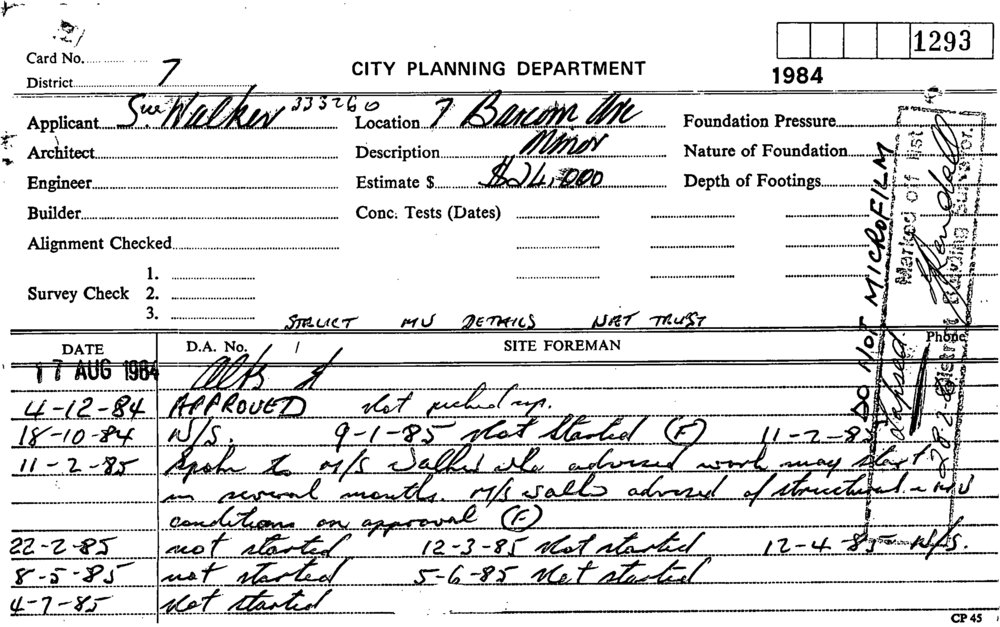 1293
Card No.
District 7
CITY PLANNING DEPARTMENT
1984
Applicant Sue Walker 333260
Location 7 Barcom Ave
Foundation Pressure
Architect
Description Minor
Nature of Foundation
Engineer
Estimate $ $24,000
Depth of Footings
Builder
Conc. Tests (Dates)
Alignment Checked
Survey Check 1.
2.
3.
STRUCT MV DETAILS NAT TRUST
DATE D.A. No. SITE FOREMAN Phone
17 AUG 1984 Alts
4-12-84 APPROVED Not picked up.
18-10-84 N/S. 9-1-85 Not Started (F) 11-2-85
11-2-85 Spoke to M/S Walker who advised work may start
in several months. M/S Walker advised of structural & MV
conditions on approval (F)
22-2-85 not started 12-3-85 Not started 12-4-85 N/S.
8-5-85 not started 5-6-85 Not started
4-7-85 Not started
CP 45
DO NOT MICROFILM
Lapsed.
Marked off list
28-2-8
District Building Surveyor.